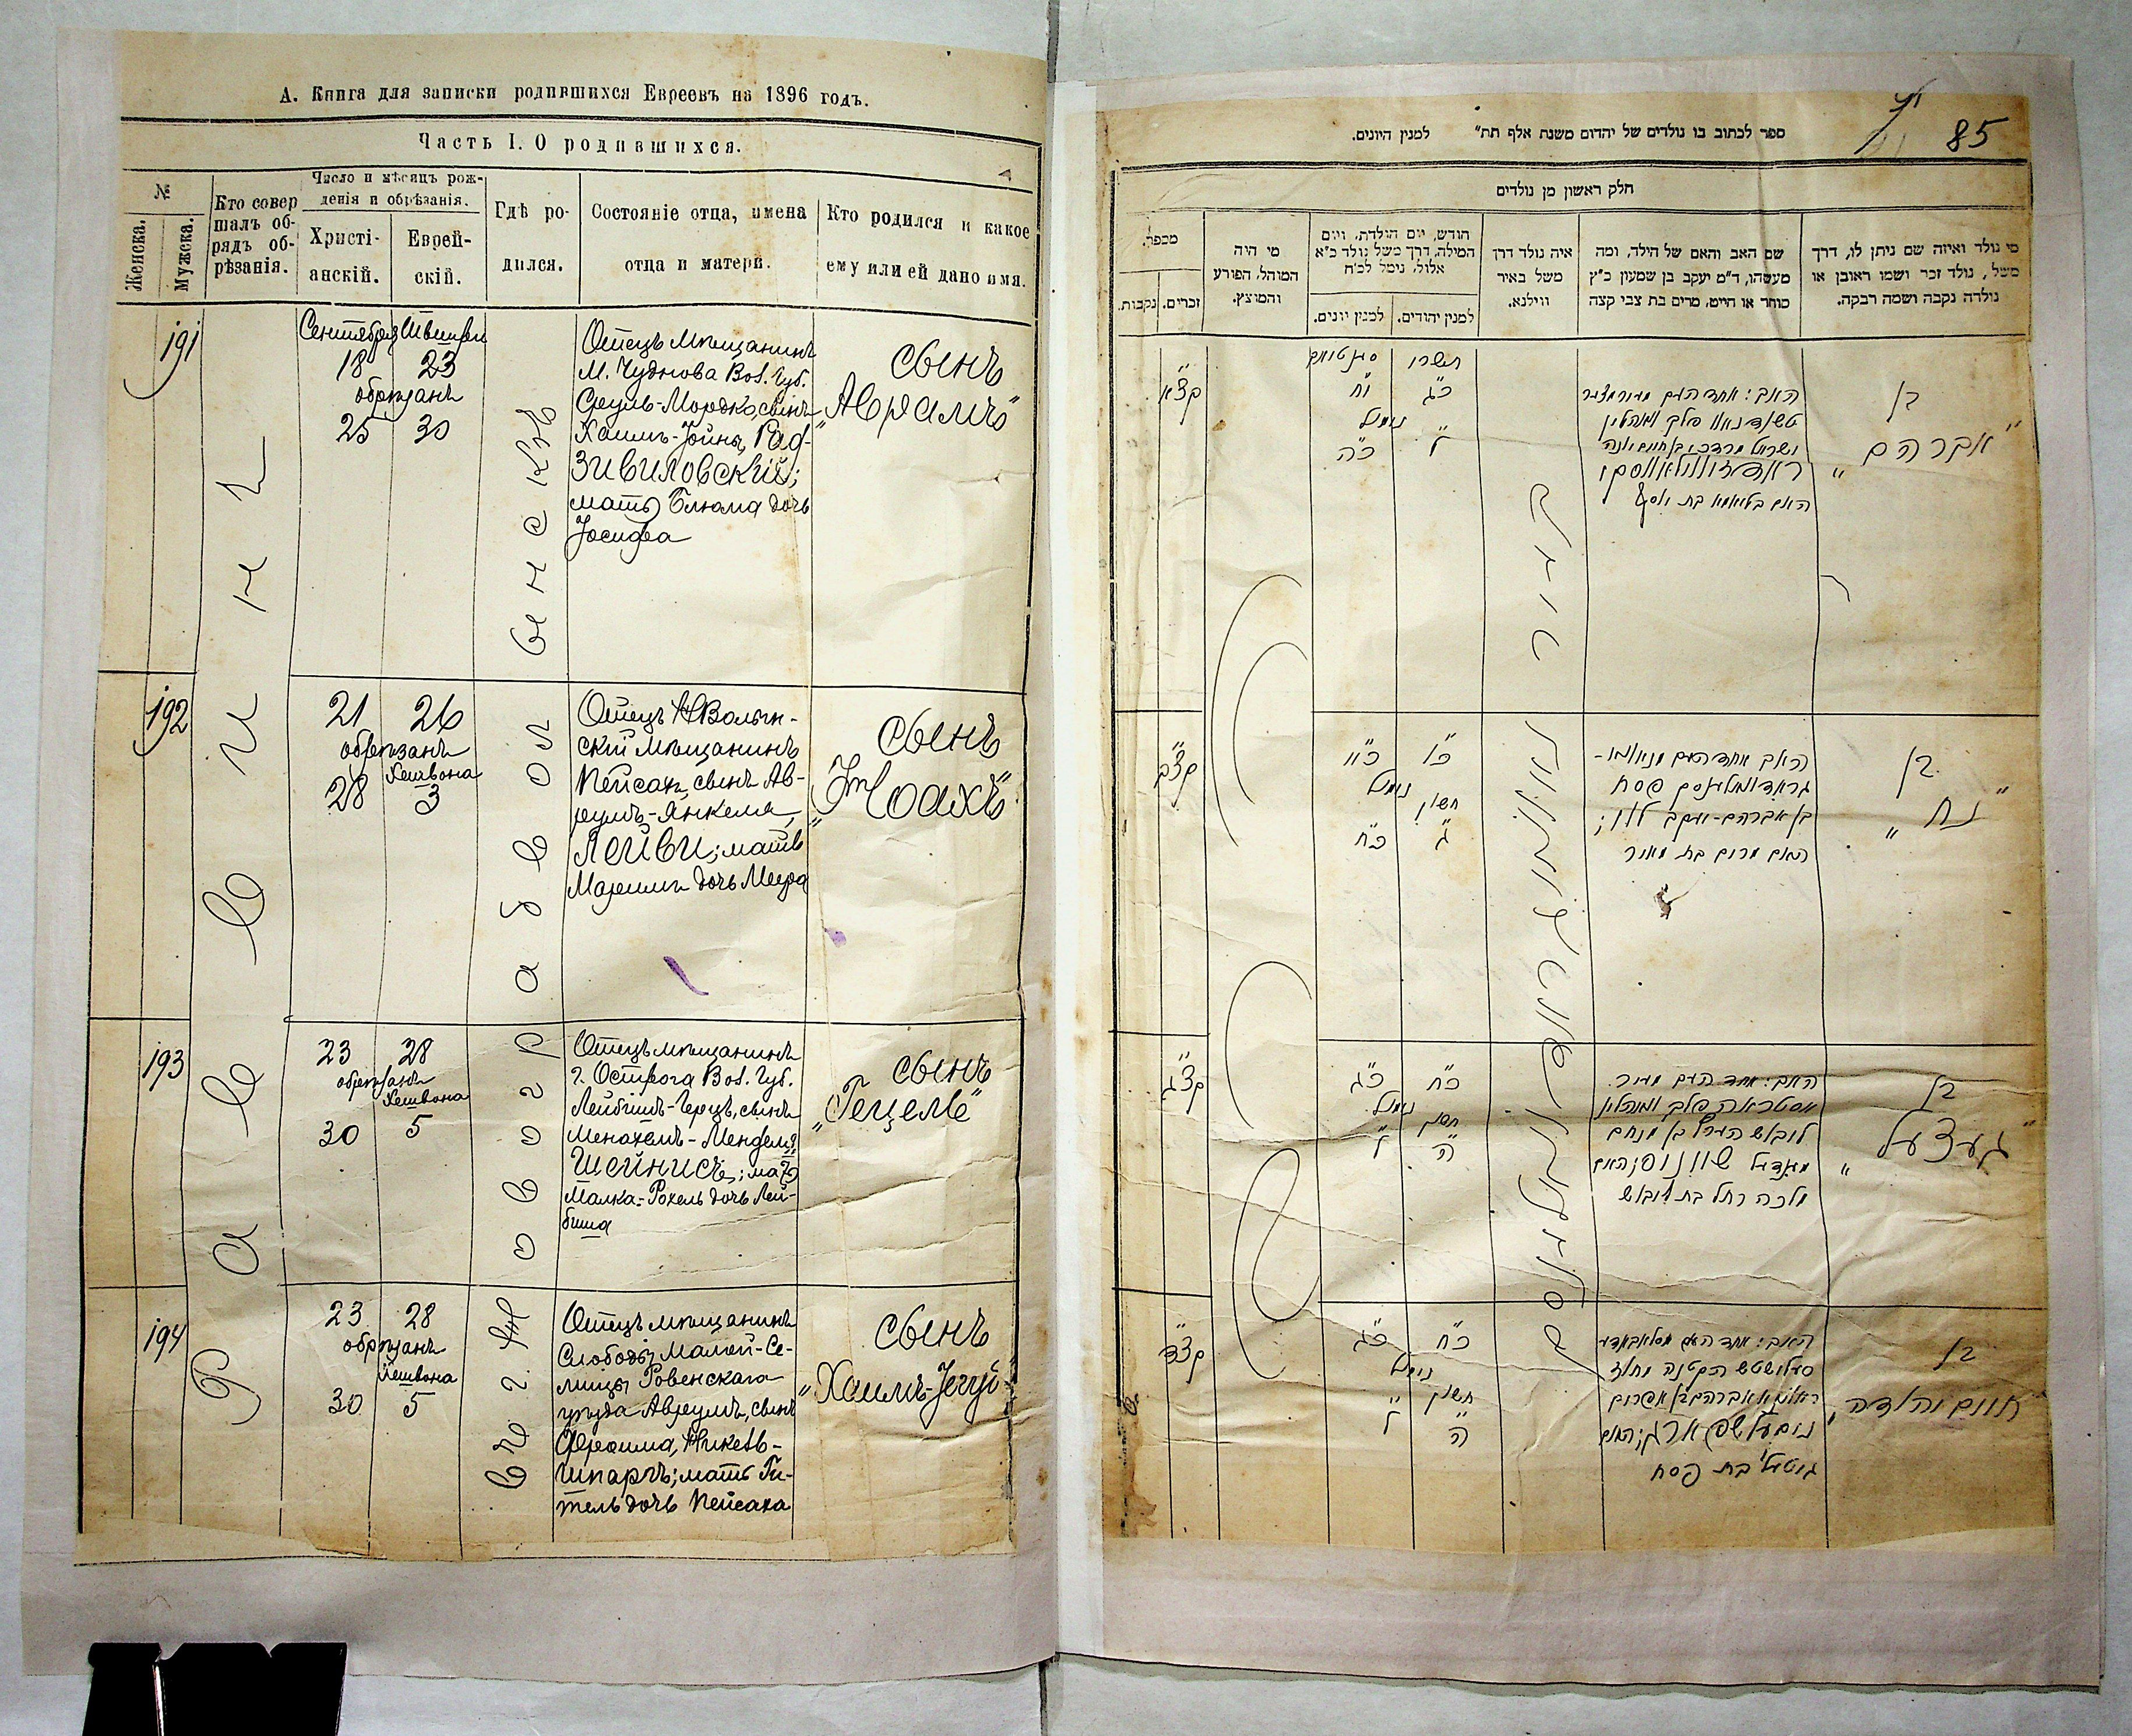 А. Книга для записки родившихся Евреевъ на 1896 годъ.
Часть I. О родившихся.
№
Женска.
Мужска.
Кто совер
шалъ об-
рядъ об-
рѣзанія.
Число и мѣсяцъ рож-
денія и обрѣзанія.
Христі-
анскій.
Еврей-
скій.
Гдѣ ро-
дился.
Состояніе отца, имена
отца и матери.
Кто родился и какое
ему или ей дано имя.
191
Сентября
18 23
обрѣзанъ
25 30
Отецъ мѣщанинъ
М. Чуднова Вол. Губ.
Сруль-Мордко, сынъ
Хаимъ-Іойны, Рад-
зивиловскій;
мать Блюма дочь
Іосифа
сынъ
„Аврамъ"
192
21 26
обрѣзанъ
Хешвона
28 3
Отецъ Н Волын-
скій мѣщанинъ
Пейсахъ, сынъ Ав-
румъ-Янкеля,
Лейви; мать
Маріимъ дочь Меера
сынъ
„Ноахъ"
193
23 28
обрѣзанъ
Хешвона
30 5
Отецъ мѣщанинъ
г. Острога Вол. Губ.
Лейбишъ-Герцъ, сынъ
Менахемъ-Менделя
Шейнисъ; мать
Малка-Рохель дочь Лей-
биша
сынъ
„Гецель"
194
23 28
обрѣзанъ
Хешвона
30 5
Отецъ мѣщанинъ
Слободы Малой-Се-
лищи Ровенскаго
уѣзда Аврумъ, сынъ
Фроима,
шпаргъ; мать Ги-
тель дочь Пейсаха
сынъ
Раввинъ
въ г. Новоградволынскѣ
85
ספר לכתוב בו נולדים של יהדום משנת אלף תת״ למנין היונים.
חלק ראשון מן נולדים
מי נולד ואיזה שם ניתן לו, דרך
משל, נולד זכר ושמו ראובן או
נולדה נקבה ושמה רבקה.
שם האב והאם של הילד, ומה
מעשהו, ד״מ יעקב בן שמעון כ״ץ
סוחר או חייט, מרים בת צבי קצה
איה נולד דרך
משל באיר
ווילנא.
חודש, יום הולדת, ויום
המילה, דרך משל נולד כ״א
אלול, נימל לכ״ח
למנין יהודים.
למנין יונים.
מי היה
המוהל, הפורע
והמוצץ.
מכפר.
זכרים.
נקבות.
בן
„אברהם"
ישראל מרדכי בן חיים יונה
האם בלומא בת יוסף
תשרי
כ״ג י״ח
נימול
ל׳ כ״ה
קצ״א
בן
„נח"
בן אברהם-יעקב לוי;
האם מרים בת מאיר
כ״ו כ״א
נימול
חשון
ג׳ כ״ח
קצ״ב
בן
„געצעל"
לייבוש הערץ בן מנחם
מענדיל שיינוס; האם
מלכה רחל בת לייבוש
כ״ח כ״ג
נימול
חשון
ה׳ ל׳
קצ״ג
בן
„חיים יהודה"
גיטל בת פסח
כ״ח כ״ג
נימול
חשון
ה׳ ל׳
קצ״ד